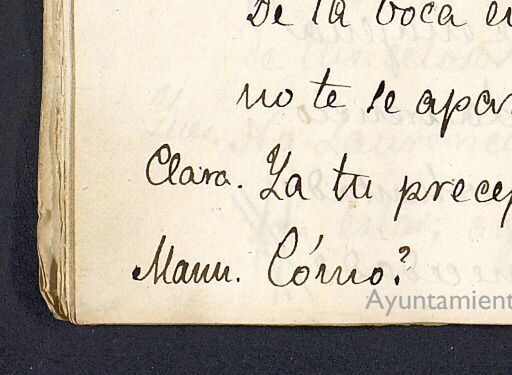 De la boca
no te se apar
Clara. Ya tu precep
Manu. Cómo?
Ayuntamient